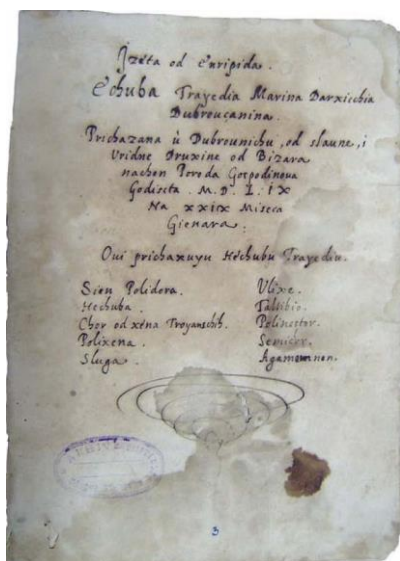 Izeta od Euripida.
Echuba Trayedia Marina Darxicchia
Dubroucanina.
Prichazana ù Dubrounichu, od slaune, i
Vridne Druxine od Bizara
nachon Poroda Gospodinova
Godiscta. M. D. L. IX
Na XXIX Miseca
Gienara.
Oui prichaxuyu Hechubu Trayediu.
Sien Polidora.
Hechuba.
Chor od xéna Troyanschih.
Polixena.
Sluga.
Vlixe.
Taltibio.
Polinestor.
Agamemnon.
3